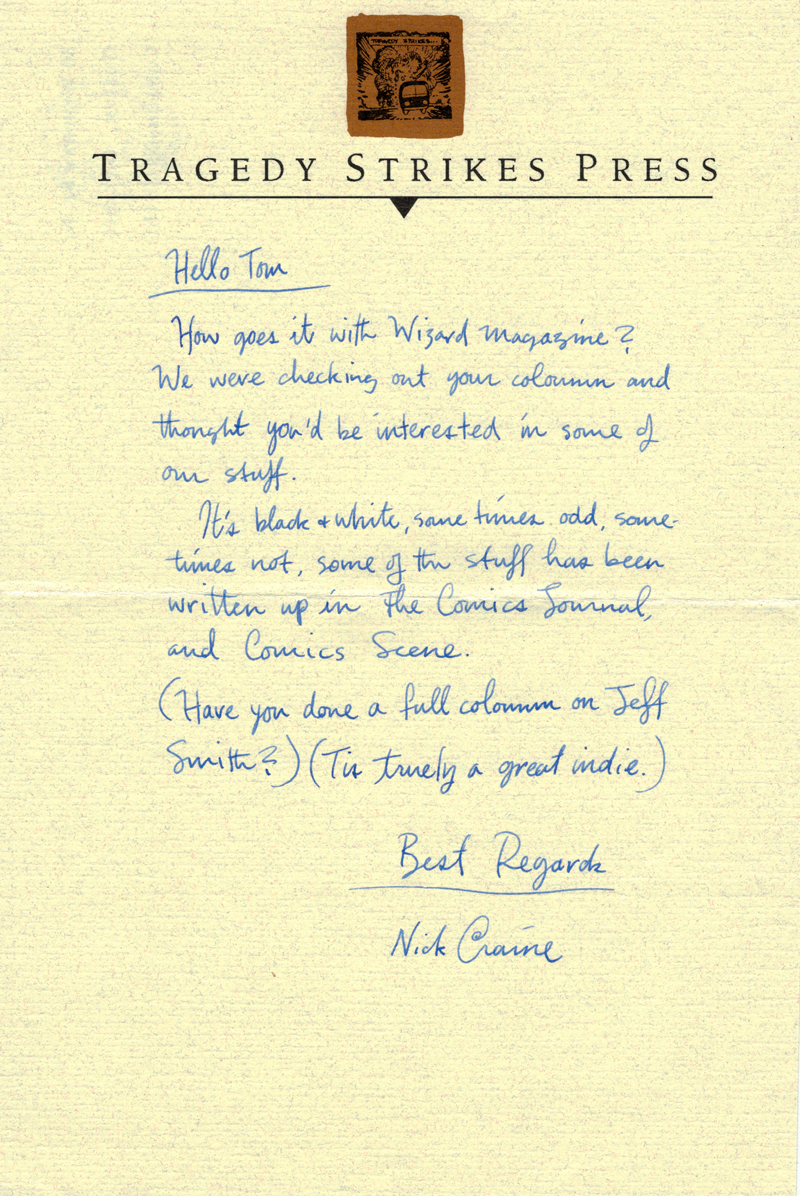 TRAGEDY STRIKES...
TRAGEDY STRIKES PRESS
Hello Tom
How goes it with Wizard magazine?
We were checking out your coloumn and
thought you'd be interested in some of
our stuff.
It's black & white, sometimes odd, some-
times not, some of the stuff has been
written up in The Comics Journal,
and Comics Scene.
(Have you done a full coloumn on Jeff
Smith?) (Tis truely a great indie.)
Best Regards
Nick Craine